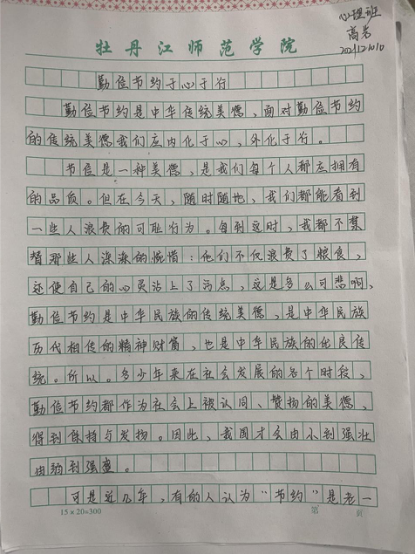 心理班
高芳
20211210
牡丹江师范学院
勤俭节约于心于行
勤俭节约是中华传统美德,面对勤俭节约
的传统美德我们应内化于心,外化于行。
节俭是一种美德,是我们每个人都应拥有
的品质。但在今天,随时随地,我们都能看到
一些人浪费的可耻行为。每到这时,我都不禁
替那些人深深的惋惜:他们不仅浪费了粮食,
还使自己的心灵沾上了污点,这是多么可悲啊,
勤俭节约是中华民族的传统美德,是中华民族
历代相传的精神财富,也是中华民族的优良传
统。所以。多少年来在社会发展的各个时段,
勤俭节约都作为社会上被认同、赞扬的美德,
得到保持与发扬。因此,我国才会由小到强壮
由弱到强盛。
可是近几年,有的人认为“节约”是老一
15×20=300
第 页